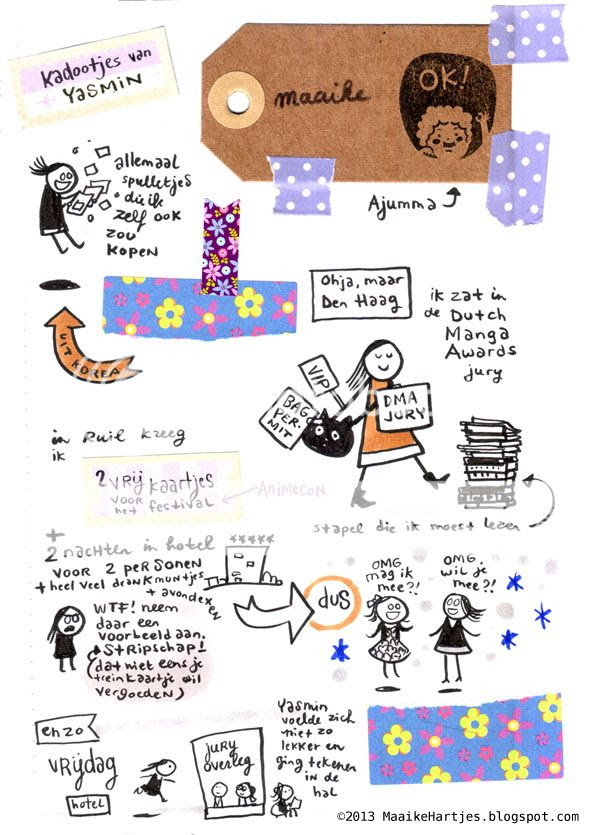 Kadootjes van
YASMIN
maaike
OK!
Ajumma
allemaal
spulletjes
die ik
zelf ook
zou
kopen
UIT KOREA
Ohja, maar
Den Haag
ik zat in
de Dutch
Manga
Awards
jury
VIP
BAG
PER-
MIT
DMA
JURY
in ruil kreeg
ik
2 VRIJ kaartjes
VOOR het festival
AniMeCON
stapel die ik moest lezen
+
2 nachten in hotel
VOOR 2 personen
+ heel veel drankmuntjes
+ avondeten
dus
OMG
mag ik
mee?!
OMG,
wil je
mee?!
WTF! neem
daar een
voorbeeld aan,
STRIPSCHAP!
(dat niet eens je
treinkaartje wil
vergoeden)
enzo
VRIJdag
hotel
jury
overleg
Yasmin
voelde zich
niet zo
lekker en
ging tekenen
in de
hal
©2013 MaaikeHartjes.blogspot.com